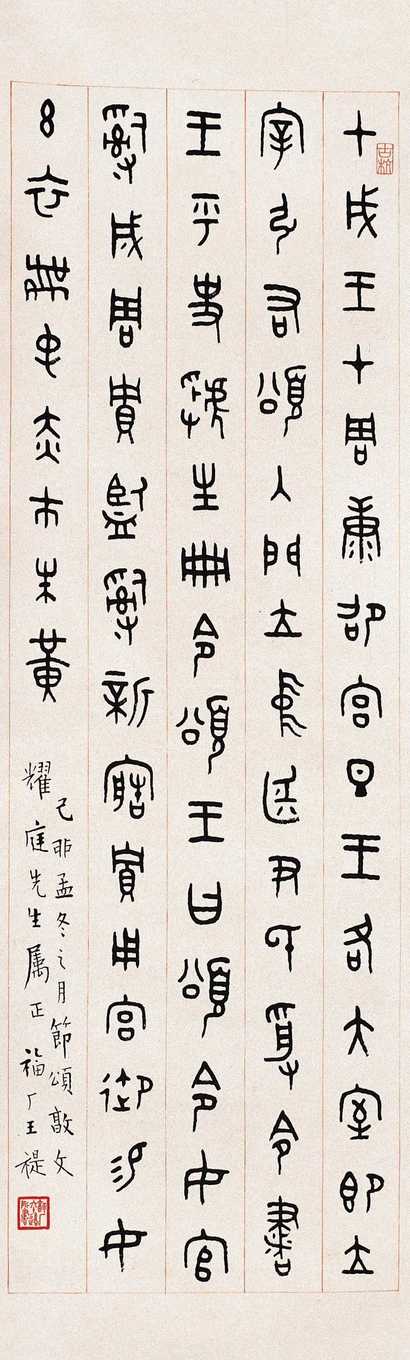 古杭
甲戌王才周康邵宮旦王各大室即立
宰弘右頌入門立中廷尹氏受令書
王乎史虢生冊令頌王曰頌令女官
𤔲成周貯監𤔲新造貯用宮御易女
玄衣黹屯赤巿朱黃
己卯孟冬之月節頌敦文
耀庭先生屬正 福厂王禔